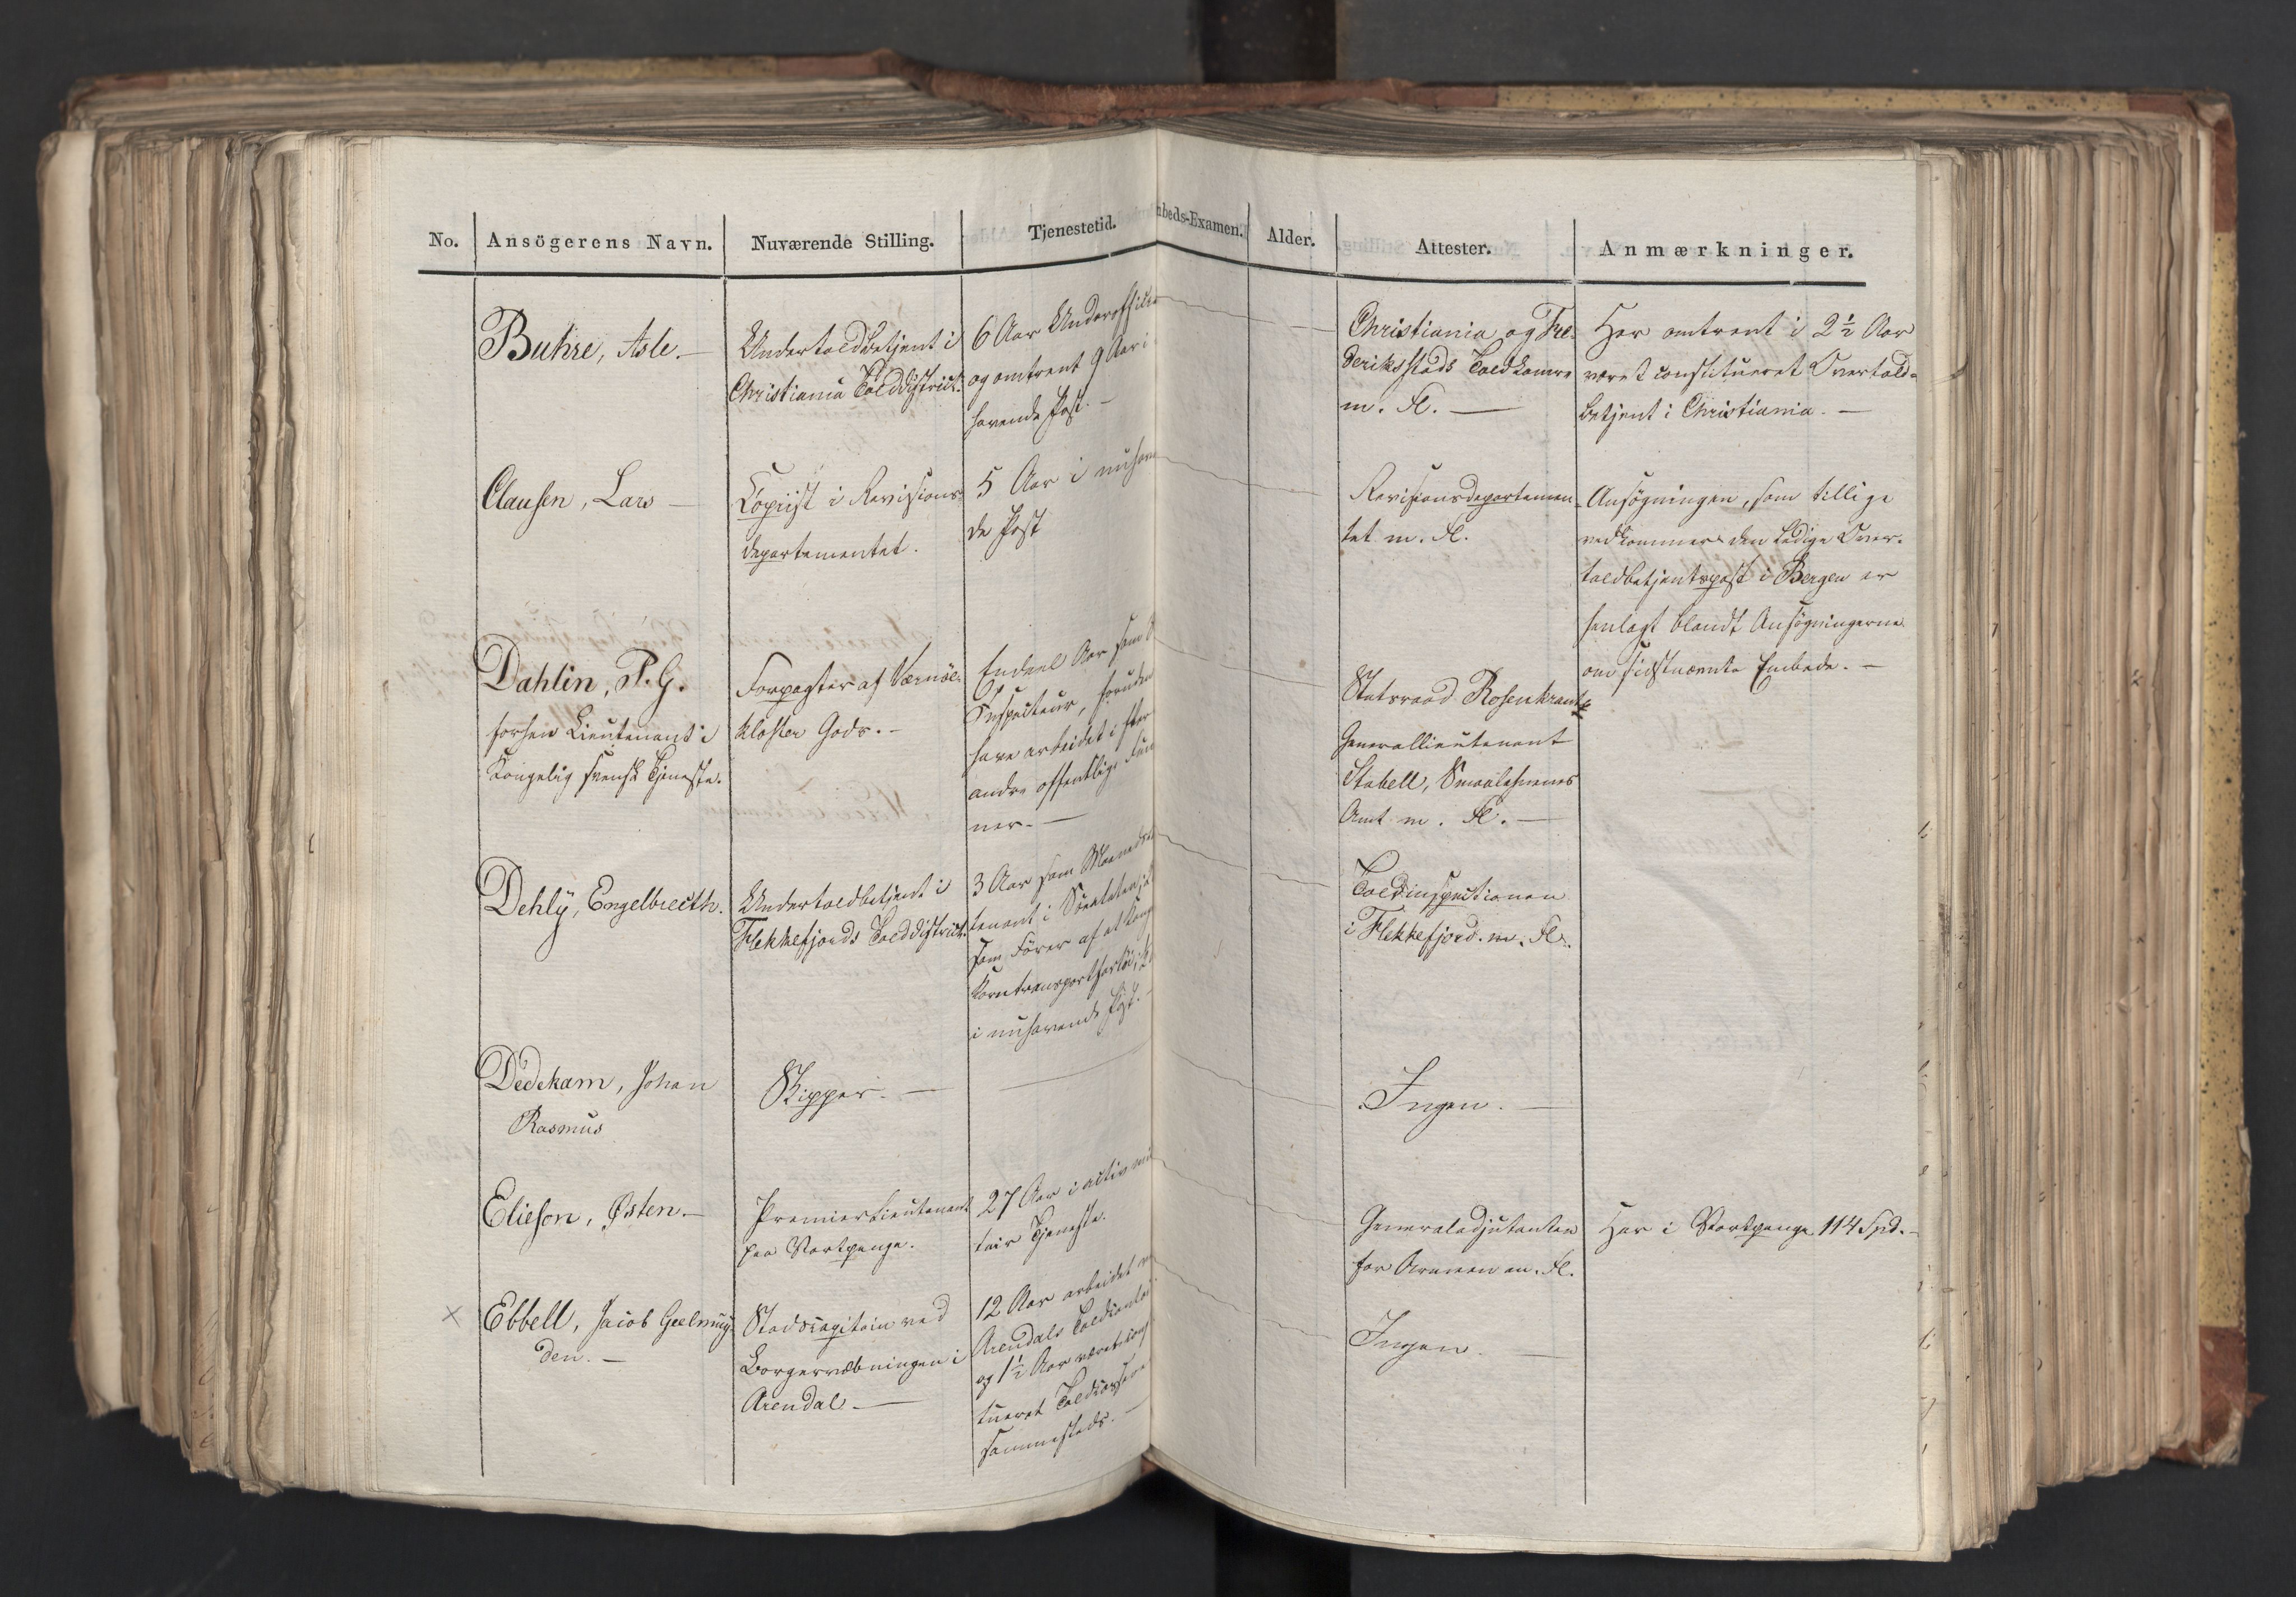 No. Ansögerens Navn. Nuværende Stilling. Tjenestetid. mbeds-Examen. Alder. Attester. Anmærkninger.
Buhre, Asle. —
Undertoldbetjent i
Christiania Tolddistrict.
6 Aar Underofficer
og omtrent 9 Aar i
havende Post. —
Christiania og Fre-
deriksstads Toldkamre
m. Fl. —
Har omtrent i 2½ Aar
været constitueret Overtold-
betjent i Christiania. —
Clausen, Lars —
Copiist i Revisions-
departementet.
5 Aar i nuhaven
de Post
Revisionsdepartemen-
tet m. Fl.
Ansøgningen, som tillige
vedkommer den ledige Over-
toldbetjentspost i Bergen er
henlagt blandt Ansøgningerne
om sidstnævnte Embede. —
Dahlin, P. G.
forhen Lieutenant i
Kongelig svensk Tjeneste.
Forpagter af Værnöe
Kloster Gods. —
Endeel Aar som
Inspecteur, foruden
have arbeidet i fler
andre offentlige
ner. —
Statsraad Rosenkrantz
Generallieutenant
Stabell, Smaalehnenes
Amt m. Fl. —
Dehly, Engelbrecth.
Undertoldbetjent i
Flekkefjords Tolddistrict.
3 Aar som Maaneds
tenant i Söeetaten
som Förer af et Kong
Korntransportfartöi;
i nuhavende Post. —
Toldinspectionen
i Flekkefjord. m. Fl.
Dedekam, Johan
Rasmus
Skipper. —
Ingen. —
Elieson, Østen. —
Premierlieutenant
paa Vartpenge.
27 Aar i activ mili
tair Tjeneste.
Generaladjutanten
for Armeen m. Fl.
Har i Vartpenge 114 Spd. —
× Ebbell, Jacob Geelmuy-
den. —
Stadscapitain ved
Borgervæbningen i
Arendal —
12 Aar arbeidet
Arendals Toldcontoi
og 1½ Aar været const
tueret Toldcasserer
sammesteds. —
Ingen. —